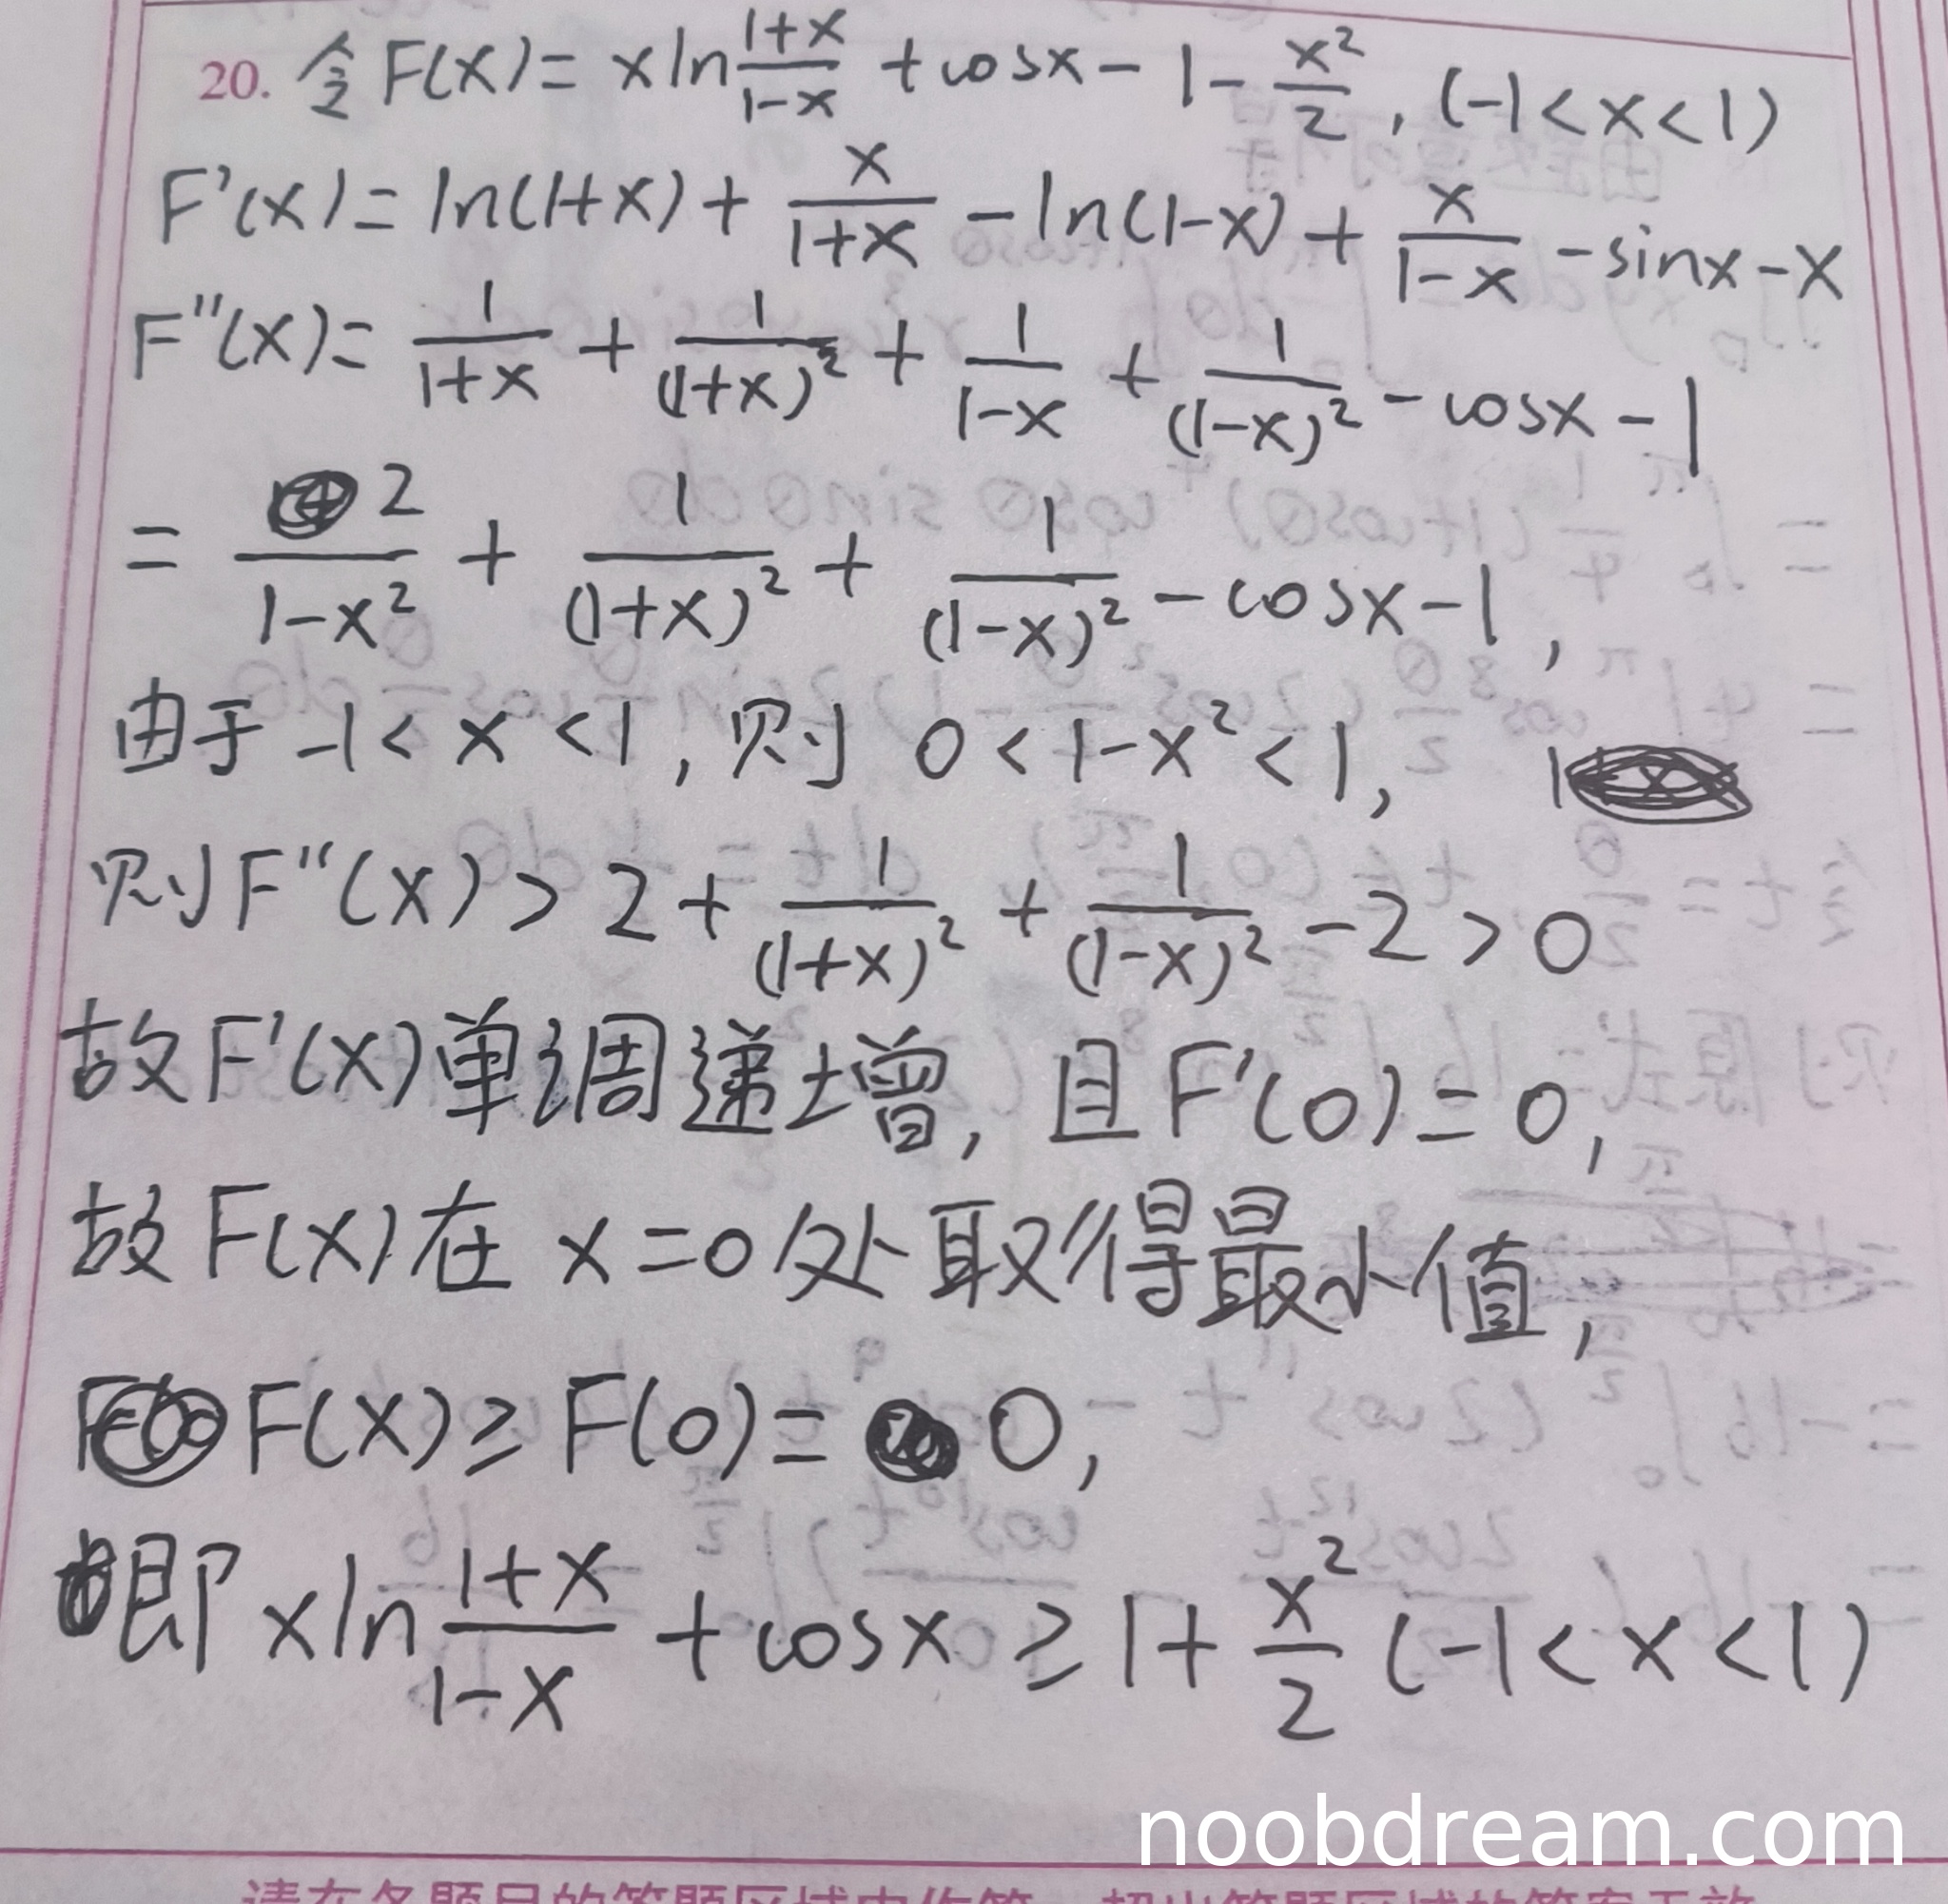 20. 令 F(x) = x ln (1+x)/(1-x) + cosx - 1 - x²/2, (-1 < x < 1)
F'(x) = ln(1+x) + x/(1+x) - ln(1-x) + x/(1-x) - sinx - x
F''(x) = 1/(1+x) + 1/(1+x)² + 1/(1-x) + 1/(1-x)² - cosx - 1
= 2/(1-x²) + 1/(1+x)² + 1/(1-x)² - cosx - 1,
由于 -1 < x < 1, 则 0 < 1-x² < 1,
则 F''(x) > 2 + 1/(1+x)² + 1/(1-x)² - 2 > 0
故 F'(x) 单调递增, 且 F'(0) = 0,
故 F(x) 在 x = 0 处取得最小值,
F(x) ≥ F(0) = 0,
即 x ln (1+x)/(1-x) + cosx ≥ 1 + x²/2 (-1 < x < 1)
noobdream.com
请在各题目的答题区域内作答，超出答题区域的答案无效